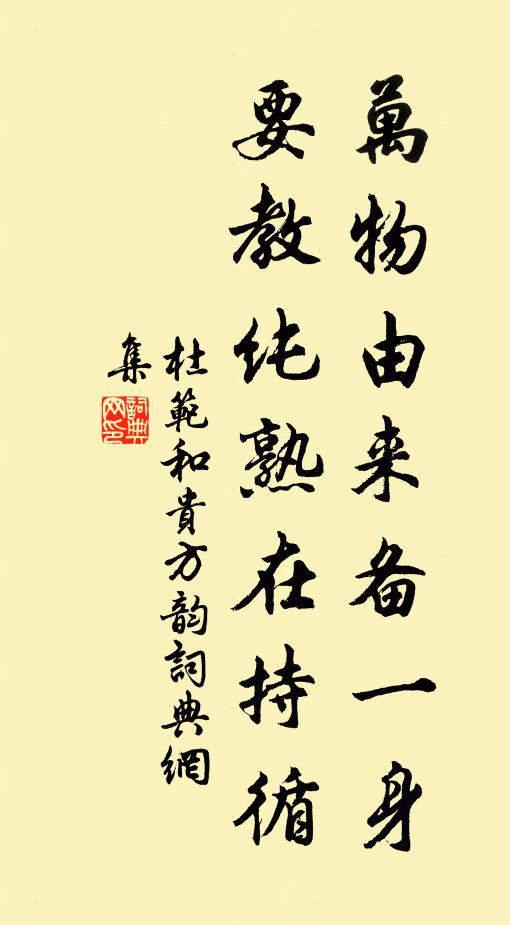 萬物由来备一身
要教纯熟在持循
杜範和貴方韵詞典網
集
詞典网印